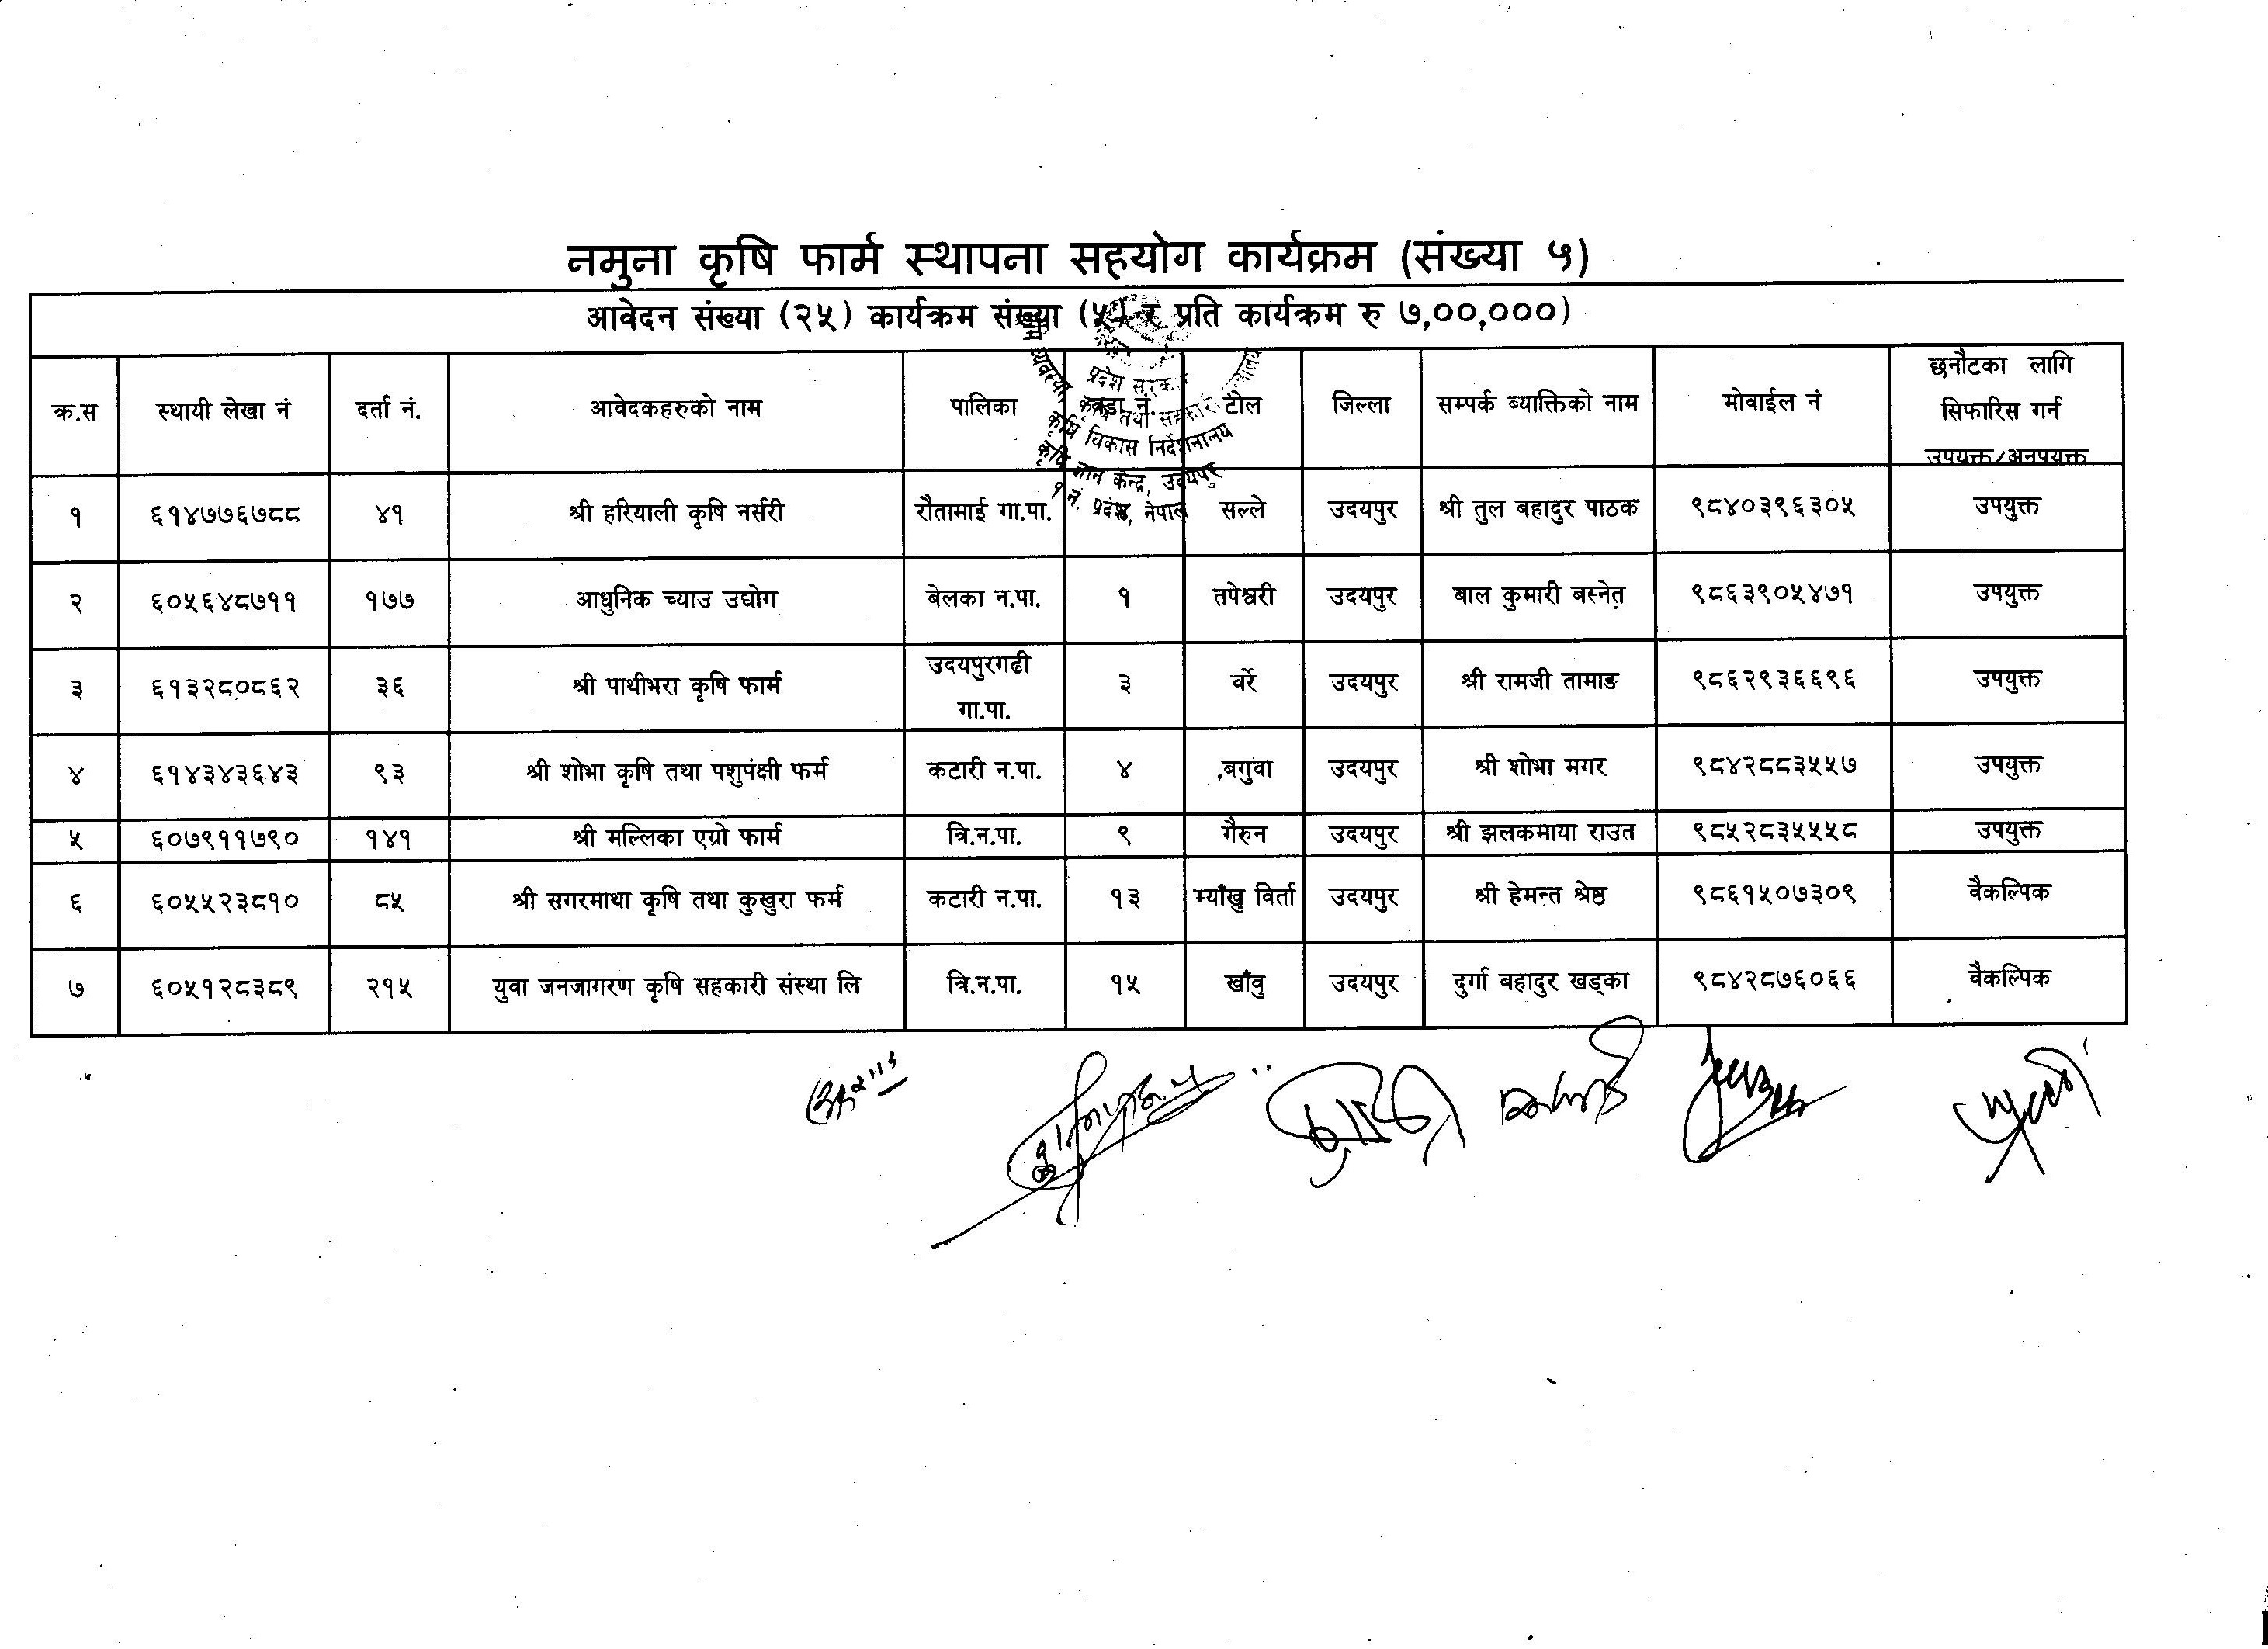 नमुना कृषि फार्म स्थापना सहयोग कार्यक्रम (संख्या ५)
आवेदन संख्या (२५) कार्यक्रम संख्या (५) र प्रति कार्यक्रम रु ७,००,०००)
क्र.स स्थायी लेखा नं दर्ता नं. आवेदकहरुको नाम पालिका वडा नं. टोल जिल्ला सम्पर्क ब्याक्तिको नाम मोवाईल नं छनौटका लागि
सिफारिस गर्न
उपयुक्त/अनुपयुक्त
प्रदेश सरकार
कृषि विकास निर्देशनालय
कृषि ज्ञान केन्द्र, उदयपुर
१ नं. प्रदेश, नेपाल
१ ६१४७७६७८८ ४१ श्री हरियाली कृषि नर्सरी रौतामाई गा.पा. सल्ले उदयपुर श्री तुल बहादुर पाठक ९८४०३९६३०५ उपयुक्त
२ ६०५६४८७११ १७७ आधुनिक च्याउ उद्योग बेलका न.पा. १ तपेश्वरी उदयपुर बाल कुमारी बस्नेत ९८६३९०५४७१ उपयुक्त
३ ६१३२८०८६२ ३६ श्री पाथीभरा कृषि फार्म उदयपुरगढी
गा.पा. ३ वर्रे उदयपुर श्री रामजी तामाङ ९८६२९३६६९६ उपयुक्त
४ ६१४३४३६४३ ९३ श्री शोभा कृषि तथा पशुपंक्षी फर्म कटारी न.पा. ४ बगुवा उदयपुर श्री शोभा मगर ९८४२८८३५५७ उपयुक्त
५ ६०७९११७९० १४१ श्री मल्लिका एग्रो फार्म त्रि.न.पा. ९ गैरुन उदयपुर श्री झलकमाया राउत ९८५२८३५५५८ उपयुक्त
६ ६०५५२३८१० ८५ श्री सगरमाथा कृषि तथा कुखुरा फर्म कटारी न.पा. १३ म्याँखु विर्ता उदयपुर श्री हेमन्त श्रेष्ठ ९८६१५०७३०९ वैकल्पिक
७ ६०५१२८३८९ २१५ युवा जनजागरण कृषि सहकारी संस्था लि त्रि.न.पा. १५ खाँवु उदयपुर दुर्गा बहादुर खड्का ९८४२८७६०६६ वैकल्पिक